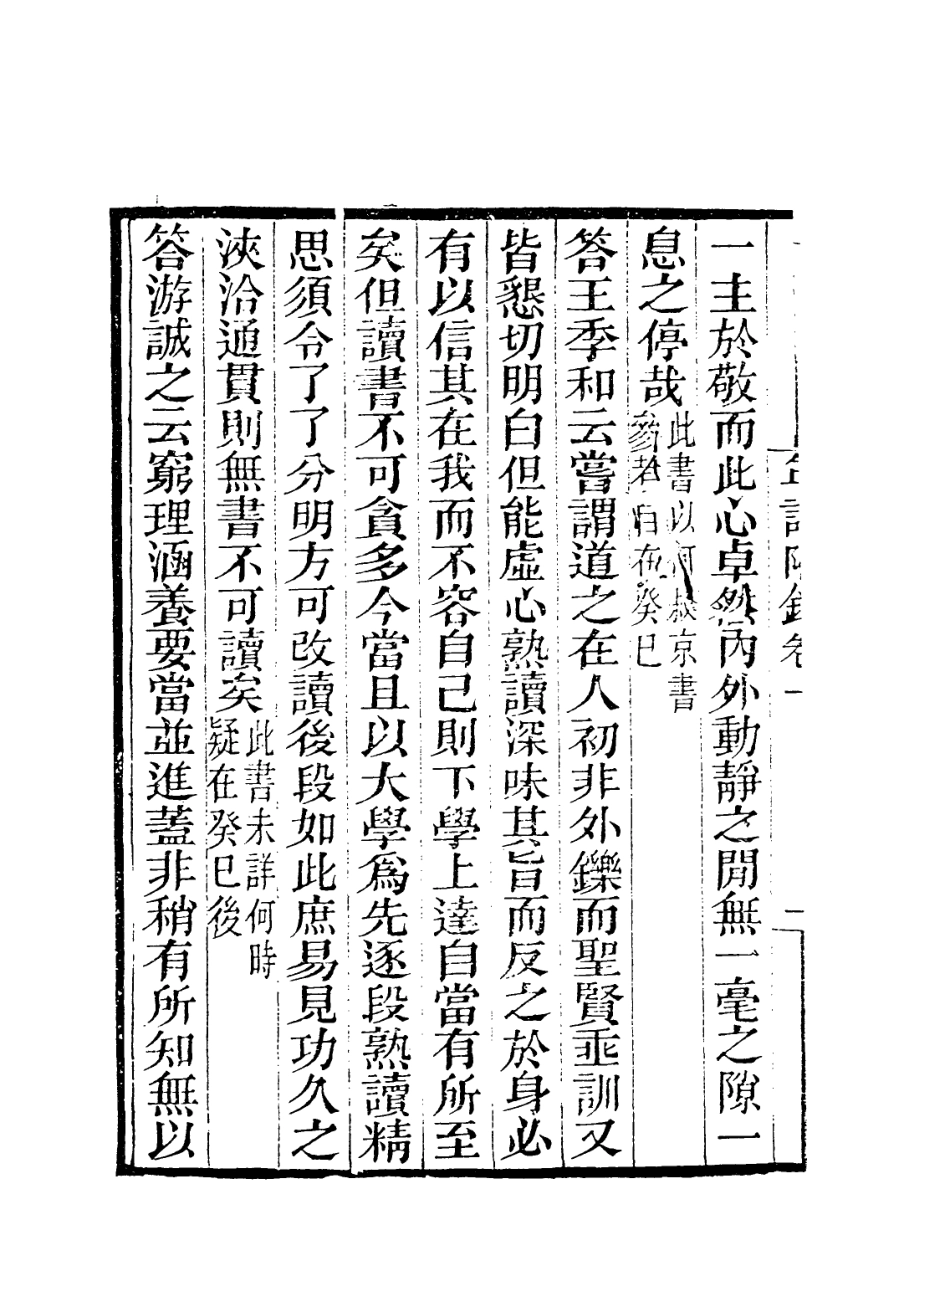 一主於敬而此心卓然內外動靜之閒無一毫之隙一
息之停哉此書以何叔京書
參考当在癸巳
答王季和云嘗謂道之在人初非外鑠而聖賢垂訓又
皆懇切明白但能虛心熟讀深味其旨而反之於身必
有以信其在我而不容自已則下學上達自當有所至
矣但讀書不可貪多今當且以大學爲先逐段熟讀精
思須令了了分明方可改讀後段如此庶易見功久之
浹洽通貫則無書不可讀矣此書未詳何時
疑在癸巳後
答游誠之云窮理涵養要當並進蓋非稍有所知無以